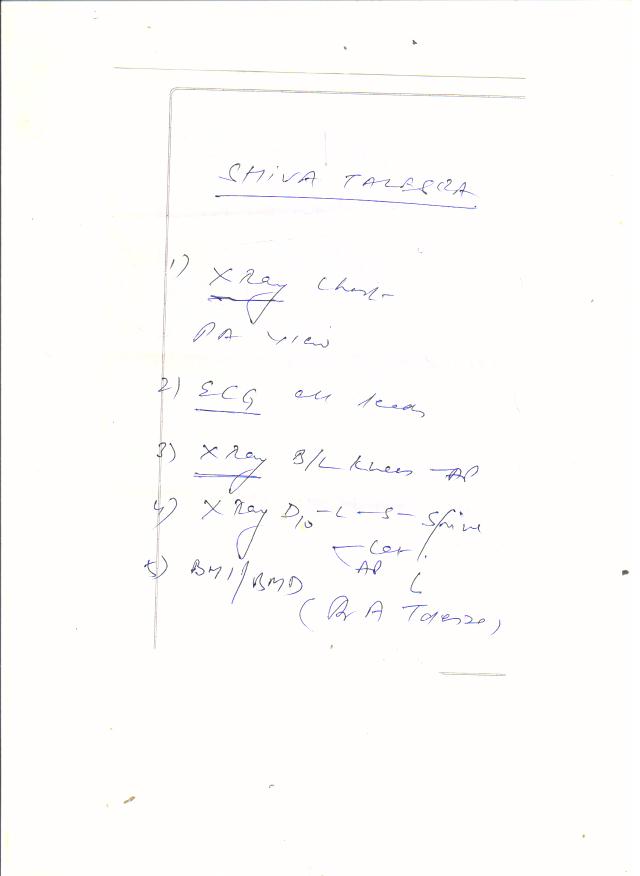 SHIVA TALESRA
1) X Ray Chest
PA view
2) ECG all leads
3) X Ray B/L Knees - AP
4) X Ray D10 - L - S - Spine
- Lat
AP
5) BMI/BMD
(Dr A